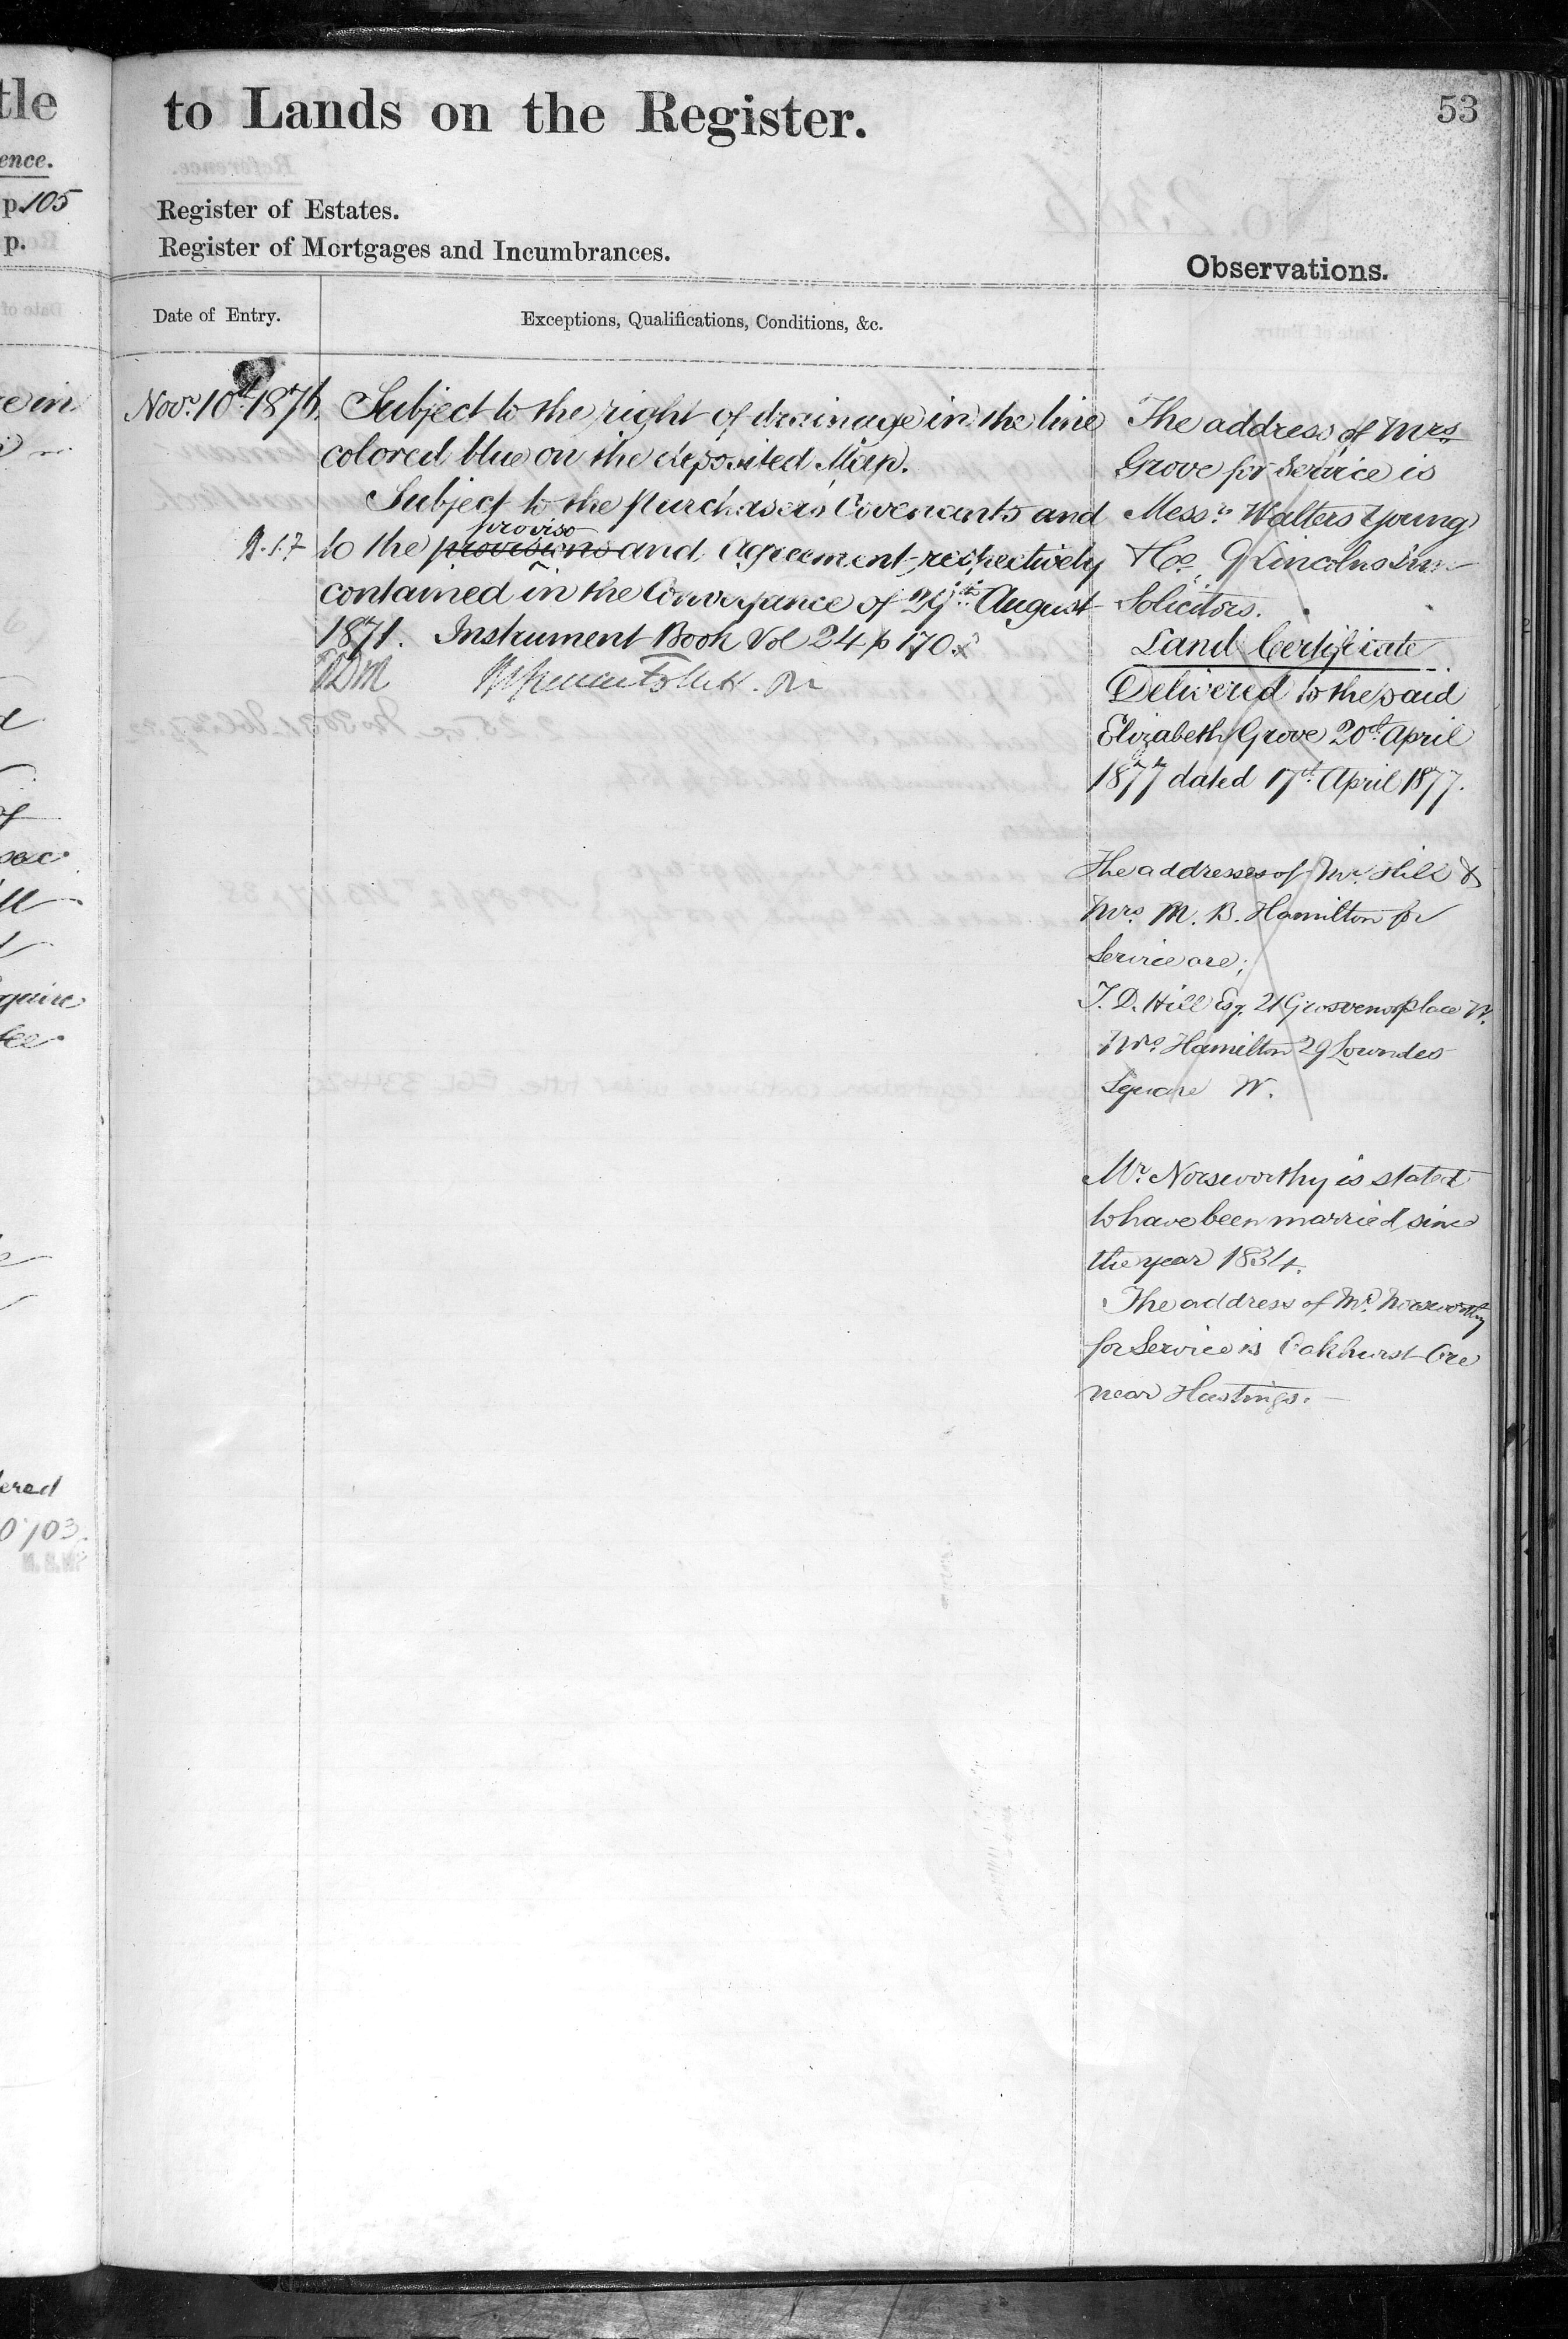 tle
ence.
p. 105
p.
to Lands on the Register.
53
Register of Estates.
Register of Mortgages and Incumbrances.
Observations.
Date of Entry.
Exceptions, Qualifications, Conditions, &c.
Novr. 10th 1876.
Subject to the right of drainage in the line
colored blue on the deposited Map.
Subject to the purchasers Covenants and
proviso
to the provisions and Agreement respectively
contained in the Conveyance of 29th August
1871. Instrument Book Vol 24 p 170.
The address of Mrs
Grove for service is
Messrs Walters Young
& Co. 9 Lincolns Inn
Solicitors.
Land Certificate
Delivered to the said
Elizabeth Grove 20th April
1877 dated 17th April 1877.
The addresses of Mr. Hill &
Mrs. M. B. Hamilton for
Service are;
T. D. Hill Esq. 21 Grosvenor place W.
Mrs Hamilton 29 Lowndes
Square W.
Mr. Norsworthy is stated
to have been married since
the year 1834.
The address of Mr. Norsworthy
for Service is Oakhurst Ore
near Hastings.
ered